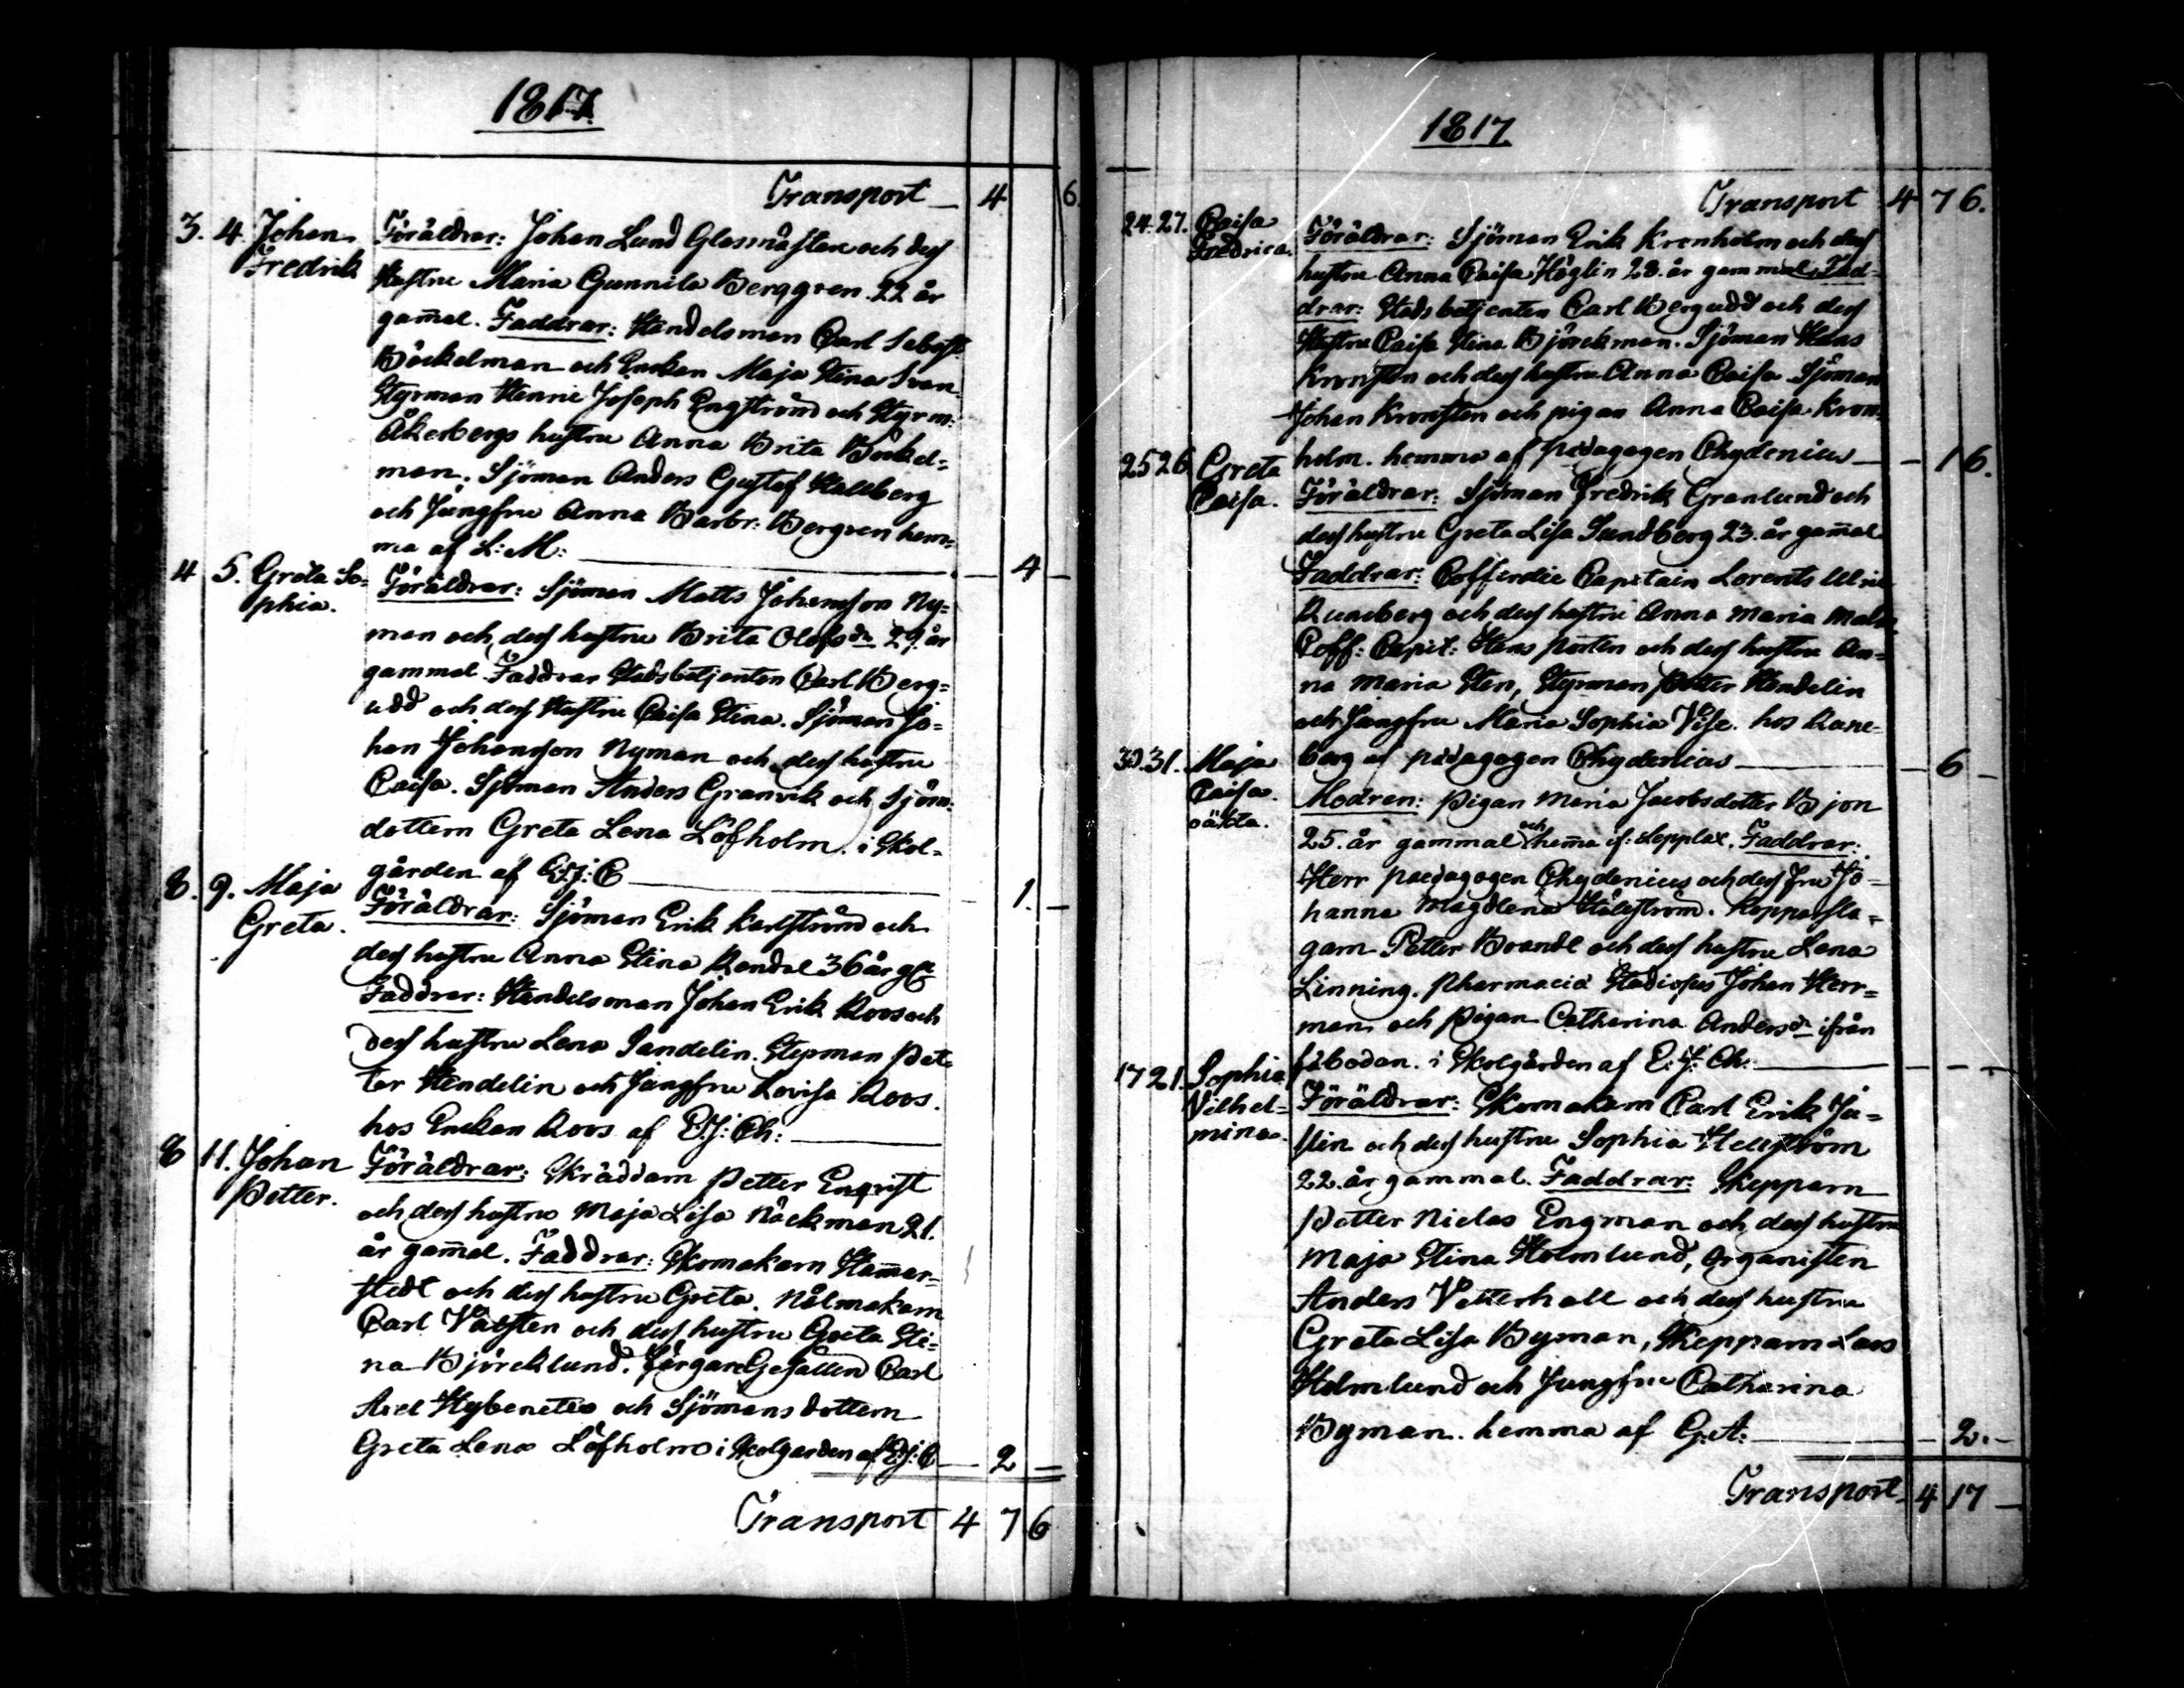 1817.
Transport — 4 6.
3. 4. Johan Föräldrar: Johan Lund Glasmästare och dess
Fredrik hustru Maria Gunnila Berggren 22 år
gam̄al. Faddrar: Handelsman Carl Sebast.
Böckelman och Enckan Maja Stina Svan
Styrman Henric Joseph Engström och Styrm:
Åkerbergs hustru Anna Brita Böckel=
man. Sjöman Anders Gustaf Hallberg
och Jungfru Anna Barbr: Bergren hem=
ma af L: M: — 4 —
4 5. Greta So= Föräldrar: Sjöman Matts Johansson Ny=
phia. man och dess hustru Brita Olofsdr 29 år
gammal Faddrar Stadsbetjenten Carl Berg=
udd och dess Hustru Caisa Stina. Sjöman Jo=
han Johansson Nyman och dess hustru
Caisa. Sjöman Anders Granvik och Sjöm:
dottern Greta Lena Löfholm. i Skol=
gården af E: J: C — 1. —
8. 9. Maja Föräldrar: Sjöman Erik Karlström och
Greta. dess hustru Anna Stina Randel 36 år gl
Faddrar: Handelsman Johan Erik Roos och
dess hustru Lena Sandelin. Stepman Pet=
ter Hendelin och Jungfru Lovisa Roos.
hos Enckan Roos af E: J: Ch: —
8 11. Johan Föräldrar: Skräddarn Petter Enqvist
Petter. och dess hustru Maja Lisa Näckman 21.
år gam̄al. Faddrar: Skomakarn Ham̄ar=
stedt och dess hustru Greta. Nålmakarn
Carl och dess hustru Greta Sti=
na Björcklund. Färgare Gesällen Carl
Axel och Sjömans dottern
Greta Lena Löfholm i Skolgården af E: J: C — 2 —
Transport 4 7 6
1817.
Transport 4 7 6.
24. 27. Caisa Föräldrar: Sjöman Erik Kronholm och dess
Fredrica. hustru Anna Caisa Höglin 28. år gammal. Fad=
drar: Stadsbetjenten Carl Bergudd och dess
Hustru Caisa Stina Björckman. Sjöman Hans
Kronsten och dess hustru Anna Caisa Sjöman
Johan Kronsten och pigan Anna Caisa Kron=
holm. hemma af pedagogen Chydenius — 1 6.
25 26 Greta Föräldrar: Sjöman Fredrik Granlund och
Caisa. dess hustru Greta Lisa Sundberg 23. år gam̄al
Faddrar: Cofferdie Capitain Lorents Ulric
Runeberg och dess hustru Anna Maria Malm
Coff: Capit: Hans Porten och dess hustru An=
na Maria Sten, Styrman Petter Hendelin
och Jungfru Maria Sophia Vise. hos Rune=
berg af pedagogen Chydenius — 6 —
30. 31. Maja Modren: Pigan Maria Jacobsdotter Bjon
Caisa. 25. år gammal och hem̄a if: Lepplax. Faddrar:
oäkta. Herr paedagogen Chydenius och dess fru Jo=
hanna Magdlena Stålström. Kopparsla=
garn Petter Brandt och dess hustru Lena
Linning. Pharmaciæ Studiosus Johan Herr=
man och Pigan Catharina Andersdr ifrån
fäbodan. i Skolgården af E: J: Ch: — — —
17 21. Sophia Föräldrar: Skomakarn Carl Erik Ju=
Vilhel= slin och dess hustru Sophia Hellström
mina. 22. år gammal. Faddrar: Skepparn
Petter Niclas Engman och dess hustru
Maja Stina Holmlund, Organisten
Anders Vetterhall och dess hustru
Greta Lisa Byman, Skepparn Lars
Holmlund och Jungfru Catharina
Byman. hemma af G: A: — 2. —
Transport 4 17 —